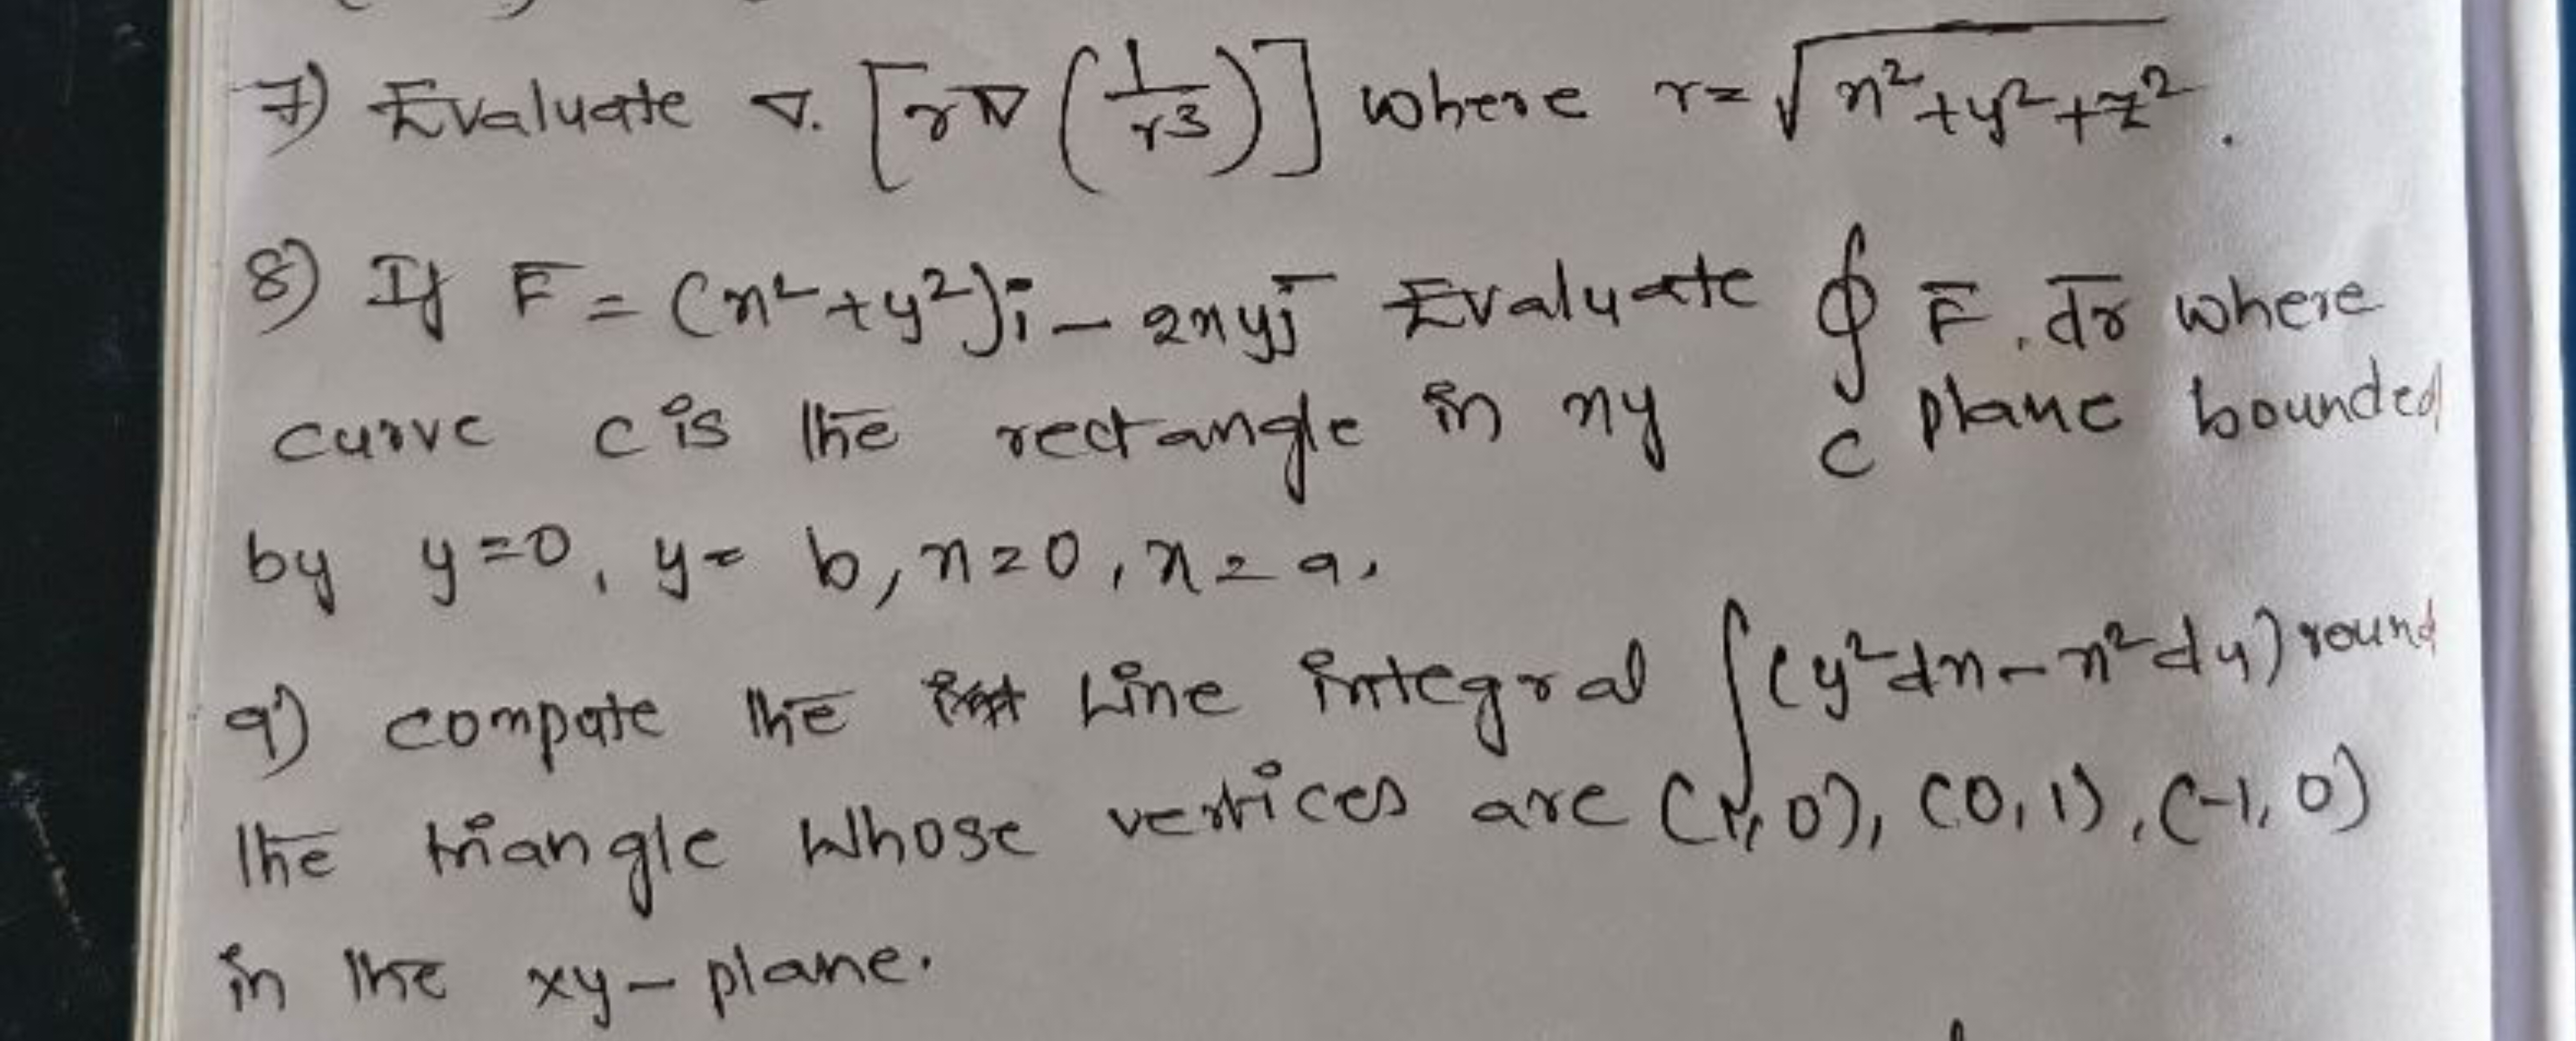 7) Evaluate ∇. [r∇ (1/r3)] where r= √x²+y²+z².
8) If F̅ = (x²+y²)i̅ - 2xyj̅ Evaluate ∮ F̅. dr̅ where
curve c is the rectangle in xy c plane bounded
by y=0, y= b, x=0, x=a.
9) compute the Line integral ∫(y²dx-x²dy) round
the triangle whose vertices are (1,0), (0,1), (-1,0)
in the xy-plane.